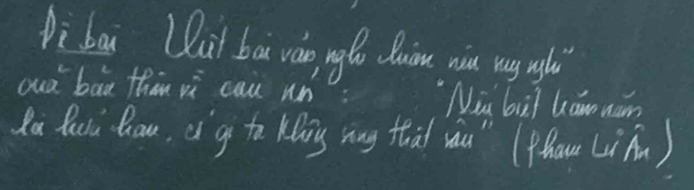 Đề bài Viết bài văn nghị luận nêu suy nghĩ
của bản thân về câu nói : "Nếu biết trăm năm
là hữu hạn, cớ gì ta không sống thật sâu" (Phạm Lữ Ân)